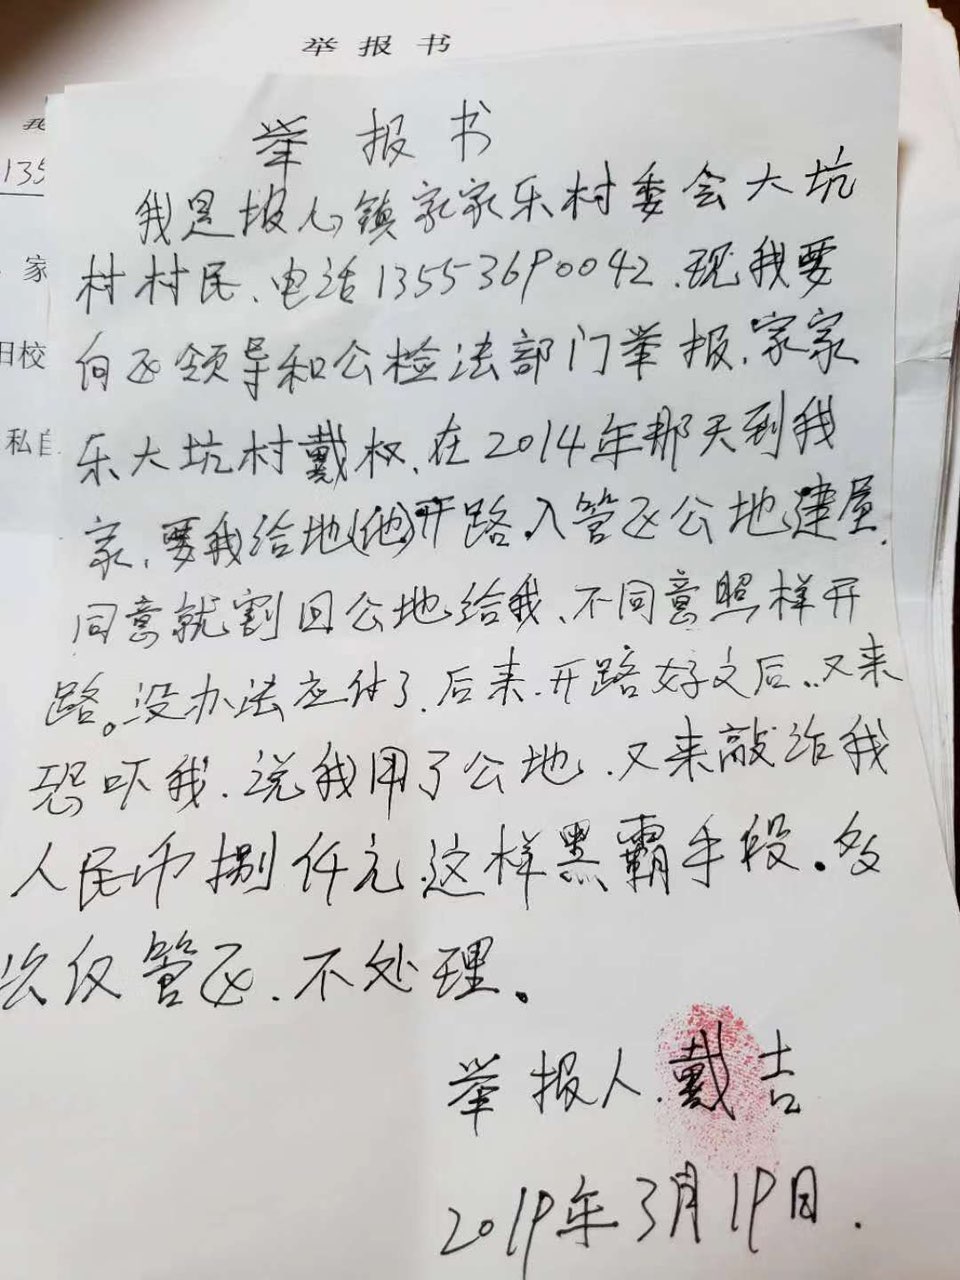 举报书
135
家
旧校
私自
举报书
我是坡心镇家家乐村委会大坑
村村民、电话13553690042.现我要
向区领导和公检法部门举报.家家
乐大坑村戴权.在2014年那天到我
家、要我给地(他)开路.入管区公地建屋.
同意就割回公地给我、不同意照样开
路。没办法应付了.后来.开路好之后..又来
恐吓我.说我用了公地.又来敲诈我
人民币捌仟元.这样黑霸手段。多
次反管区.不处理。
举报人.戴吉
2019年3月19日.